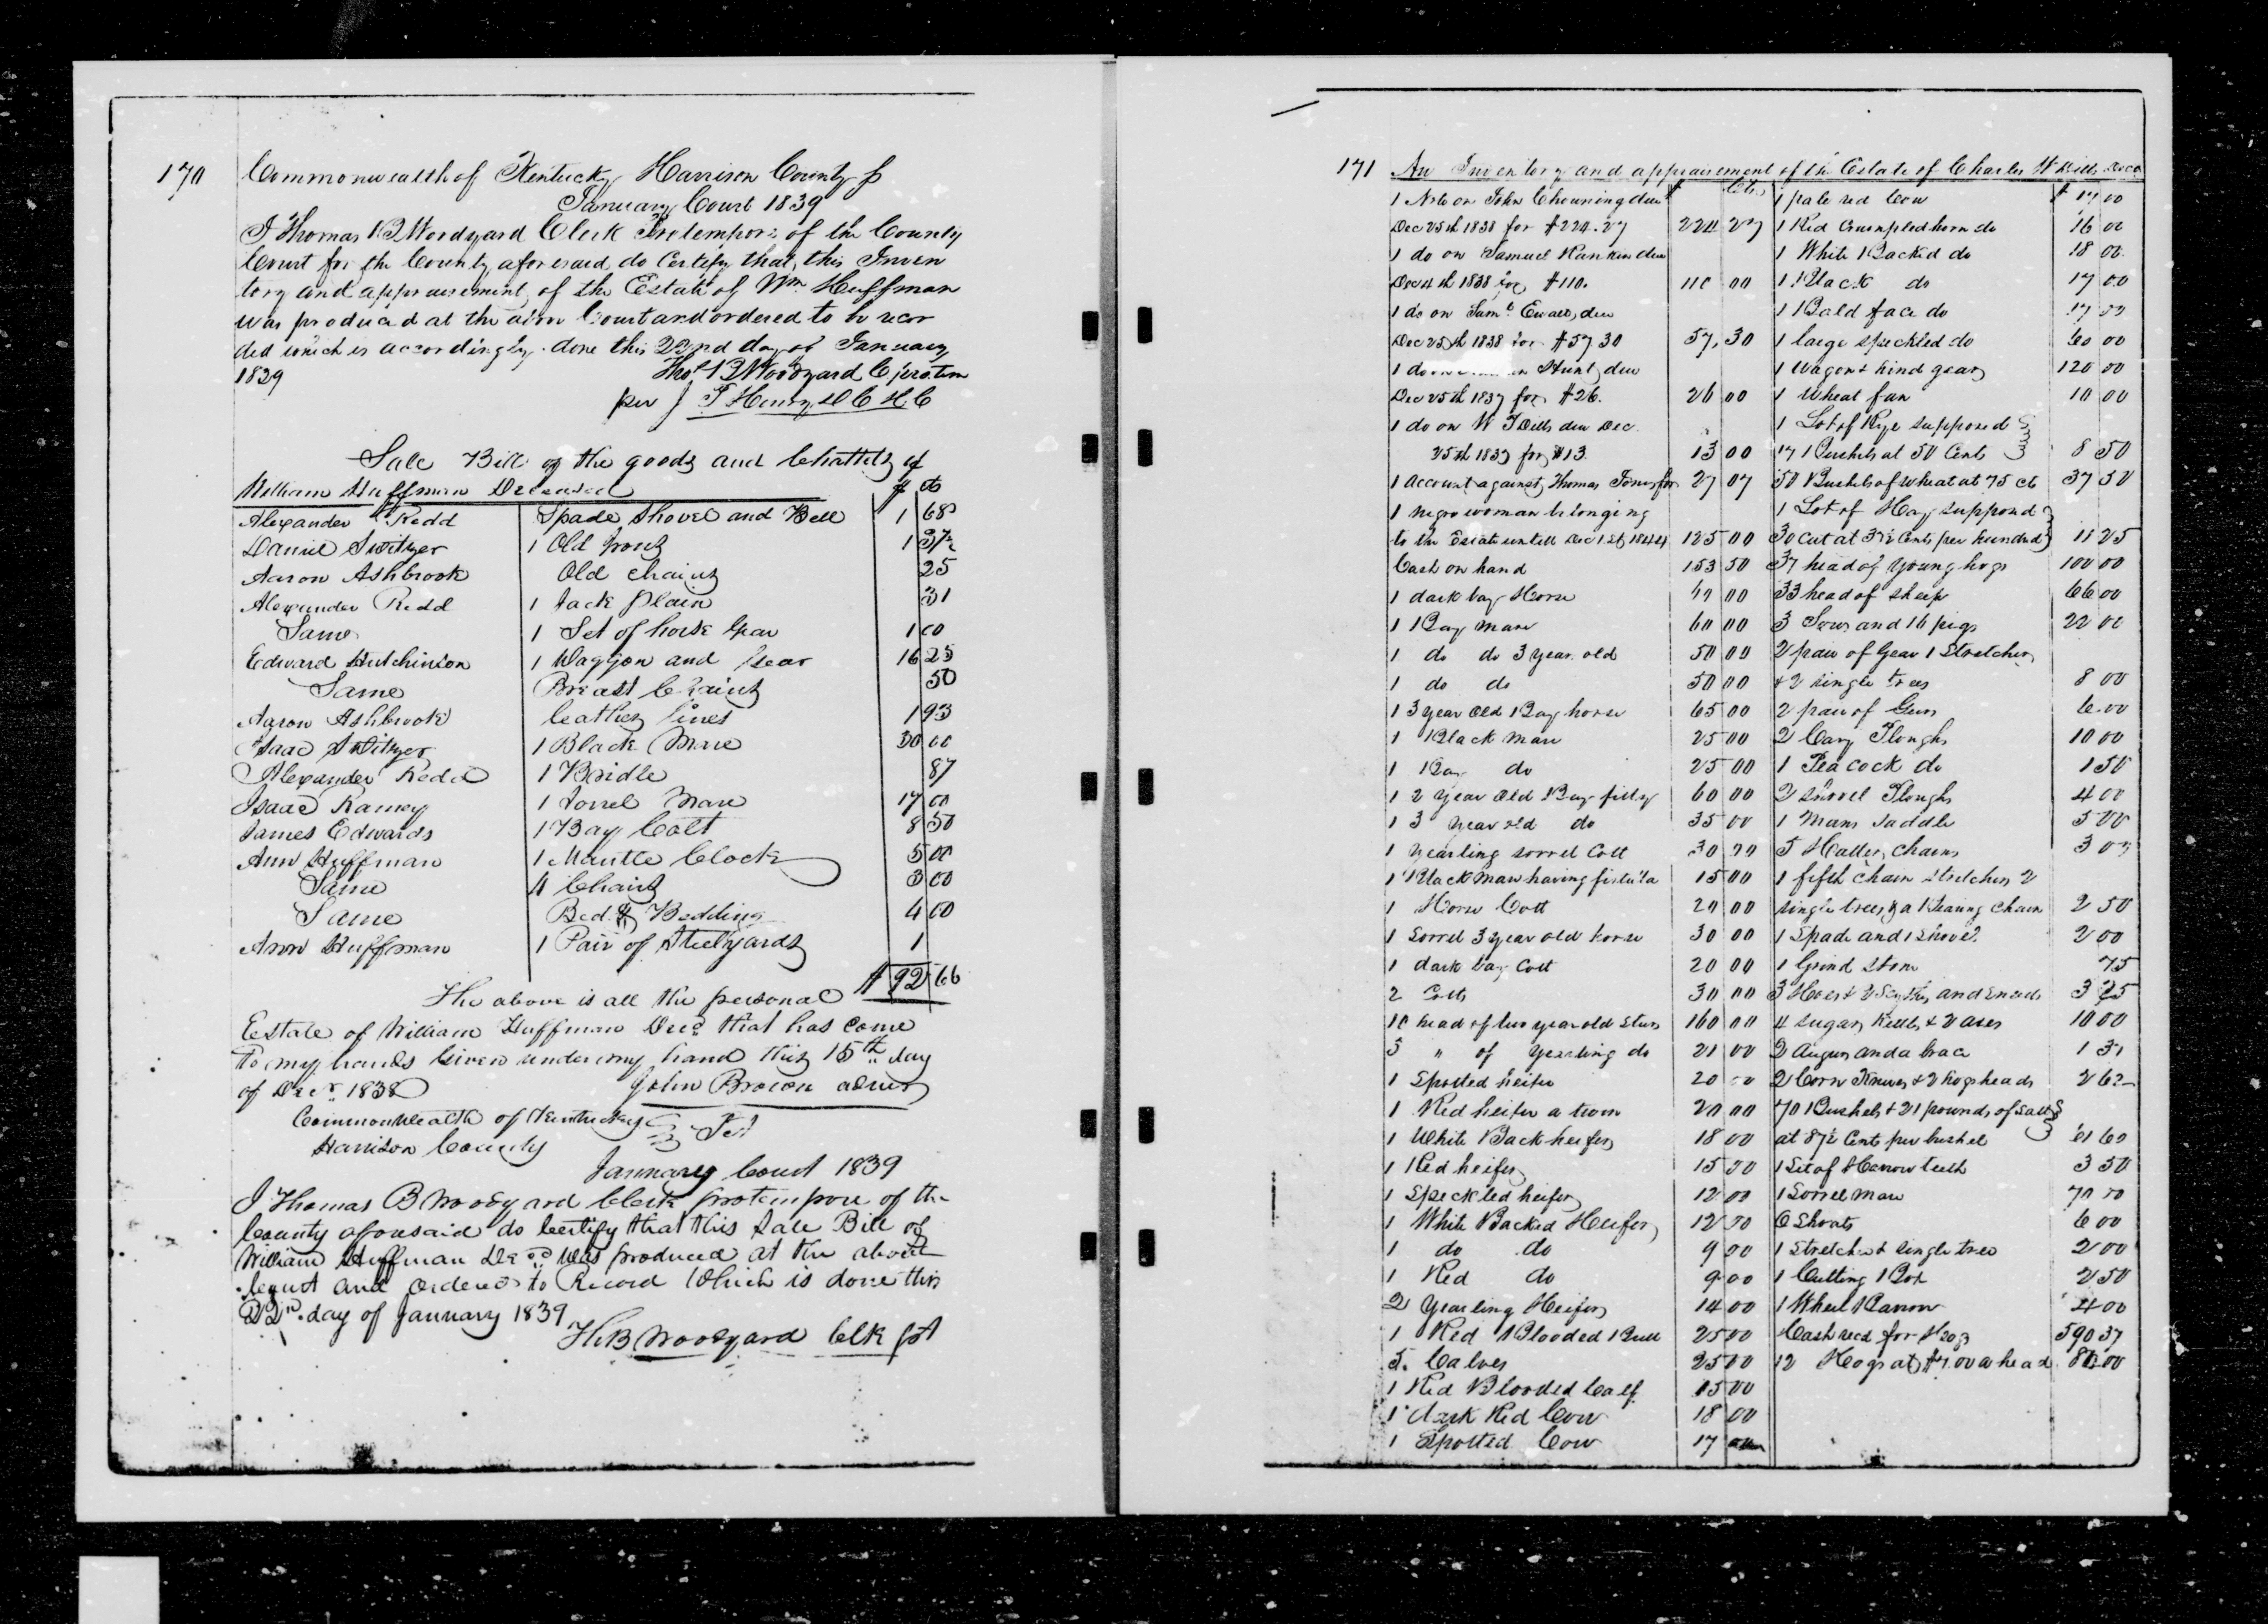 170
Commonwealth of Kentucky Harrison County S
January Court 1839
I Thomas B Woodyard Clerk Protempore of the County
Court for the County aforesaid do Certify that, this Inven
tory and appraisement of the Estate of Wm Huffman
was produced at the above Court and ordered to be recor
ded which is accordingly done this 22nd day of January
1839 Thos B Woodyard C protem
per J T Henry D C H C
Sale Bill of the goods and Chattels of
William Huffman Deceased $ cts
Alexander Redd Spade Shovel and Bell 1 68
Daniel Switzer 1 Old 1 37½
Aaron Ashbrook Old Chains 25
Alexander Redd 1 Jack Plain 31
Same 1 Set of horse Gear 1 00
Edward Hutchinson 1 Waggon and Gear 16 25
Same Breast Chains 50
Aaron Ashbrook leather lines 1 93
Isaac Switzer 1 Black Mare 30 00
Alexander Redd 1 Bridle 87
Isaac Ramey 1 Sorrel Mare 17 00
James Edwards 1 Bay Colt 8 50
Ann Huffman 1 Mantle Clock 5 00
Same 4 Chairs 3 00
Same Bed & Bedding 4 00
Ann Huffman 1 Pair of Steelyards 1
$ 92 66
The above is all the personal
Estate of William Huffman Decd that has come
to my hands Given under my hand this 15th day
of Decr 1838 John Brown admr
Commonwealth of Kentucky
Harrison County
January Court 1839
I Thomas B Woodyard Clerk protempore of the
County aforesaid do Certify that this Sale Bill of
William Huffman Decd was produced at the above
Court and ordered to Record Which is done this
22nd day of January 1839
Th B Woodyard Clk pt
171 An Inventory and appraisement of the Estate of Charles W Dills Decd
1 Note on John Chowning due $ Cts
Dec 25th 1838 for $224.27 224 27
1 do on Samuel Rankin due
Dec 4th 1838 for $110. 110 00
1 do on Saml Ewalt, due
Dec 25th 1838 for $57 30 57, 30
1 do on Hunt, due
Dec 25th 1837 for $26. 26 00
1 do on W T Dills due Dec.
25th 1837 for $13. 13 00
1 account against Thomas Jones for 27 07
1 negro woman belonging
to the Estate untill Dec 1st 1844 125 00
Cash on hand 153 50
1 dark bay Horse 00
1 Bay Mare 60 00
1 do do 3 year old 50 00
1 do do 50 00
1 3 year Old Bay horse 65 00
1 Black Mare 25 00
1 Bay do 25 00
1 2 year Old Bay filly 60 00
1 3 year old do 35 00
1 yearling sorrel Colt 30 00
1 Black Mare having fistula 15 00
1 Horse Colt 20 00
1 Sorrel 3 year old horse 30 00
1 dark bay Colt 20 00
2 Colts 30 00
10 head of two year old Steers 160 00
3 " of yearling do 21 00
1 Spotted heifer 20 00
1 Red heifer a twin 20 00
1 White Back heifer 18 00
1 Red heifer 15 00
1 Speckled heifer 12 00
1 White Backed Heifer 12 00
1 do do 9 00
1 Red do 9.00
2 Yearling Heifers 14 00
1 Red Blooded Bull 25 00
5. Calves 25 00
1 Red Blooded Calf 15 00
1 dark Red Cow 18 00
1 Spotted Cow 17
1 pale red Cow $ 17 00
1 Red Crumpled horn do 16 00
1 White Backed do 18 00
1 Black do 17 00
1 Bald face do 17 00
1 large speckled do 00
1 Wagon & hind gear 120 00
1 Wheat fan 10 00
1 Lot of Rye supposed
17 Bushels at 50 Cents 8 50
50 Bushels of wheat at 75 cts 37 50
1 Lot of Hay supposed
30 cut at 37½ Cents per hundred 11 25
37 head of young hogs 100 00
33 head of Sheep 66 00
3 Sows and 16 pigs 22 00
2 pair of Gear 1 Stretcher
& 2 single trees 8 00
2 pair of Gears 6.00
2 Cary Ploughs 10 00
1 Peacock do 1 50
2 Shovel Ploughs 4 00
1 Mans Saddle 5 00
5 Halter chains 3 00
1 fifth Chain Stretcher 2
single trees, & a Chain 2 50
1 Spade and 1 Shovel 2 00
1 Grind Stone 75
3 Hoes & 2 Scythes and Sneads 3 25
4 Sugar Kettles & 2 axes 10 00
2 Augurs and a brace 1 31
2 Corn Knives & 2 hogsheads 2 62
70 Bushels & 21 pounds of Salt
at 87½ Cents per bushel 61 60
1 Set of Harrow teeth 3 50
1 Sorrel Mare 70 00
6 Shoats 6 00
1 Stretcher & single tree 2 00
1 Cutting Box 2 50
1 Wheel Barrow 4 00
Cash recd for Hogs 590 37
12 Hogs at $7.00 a head 84.00